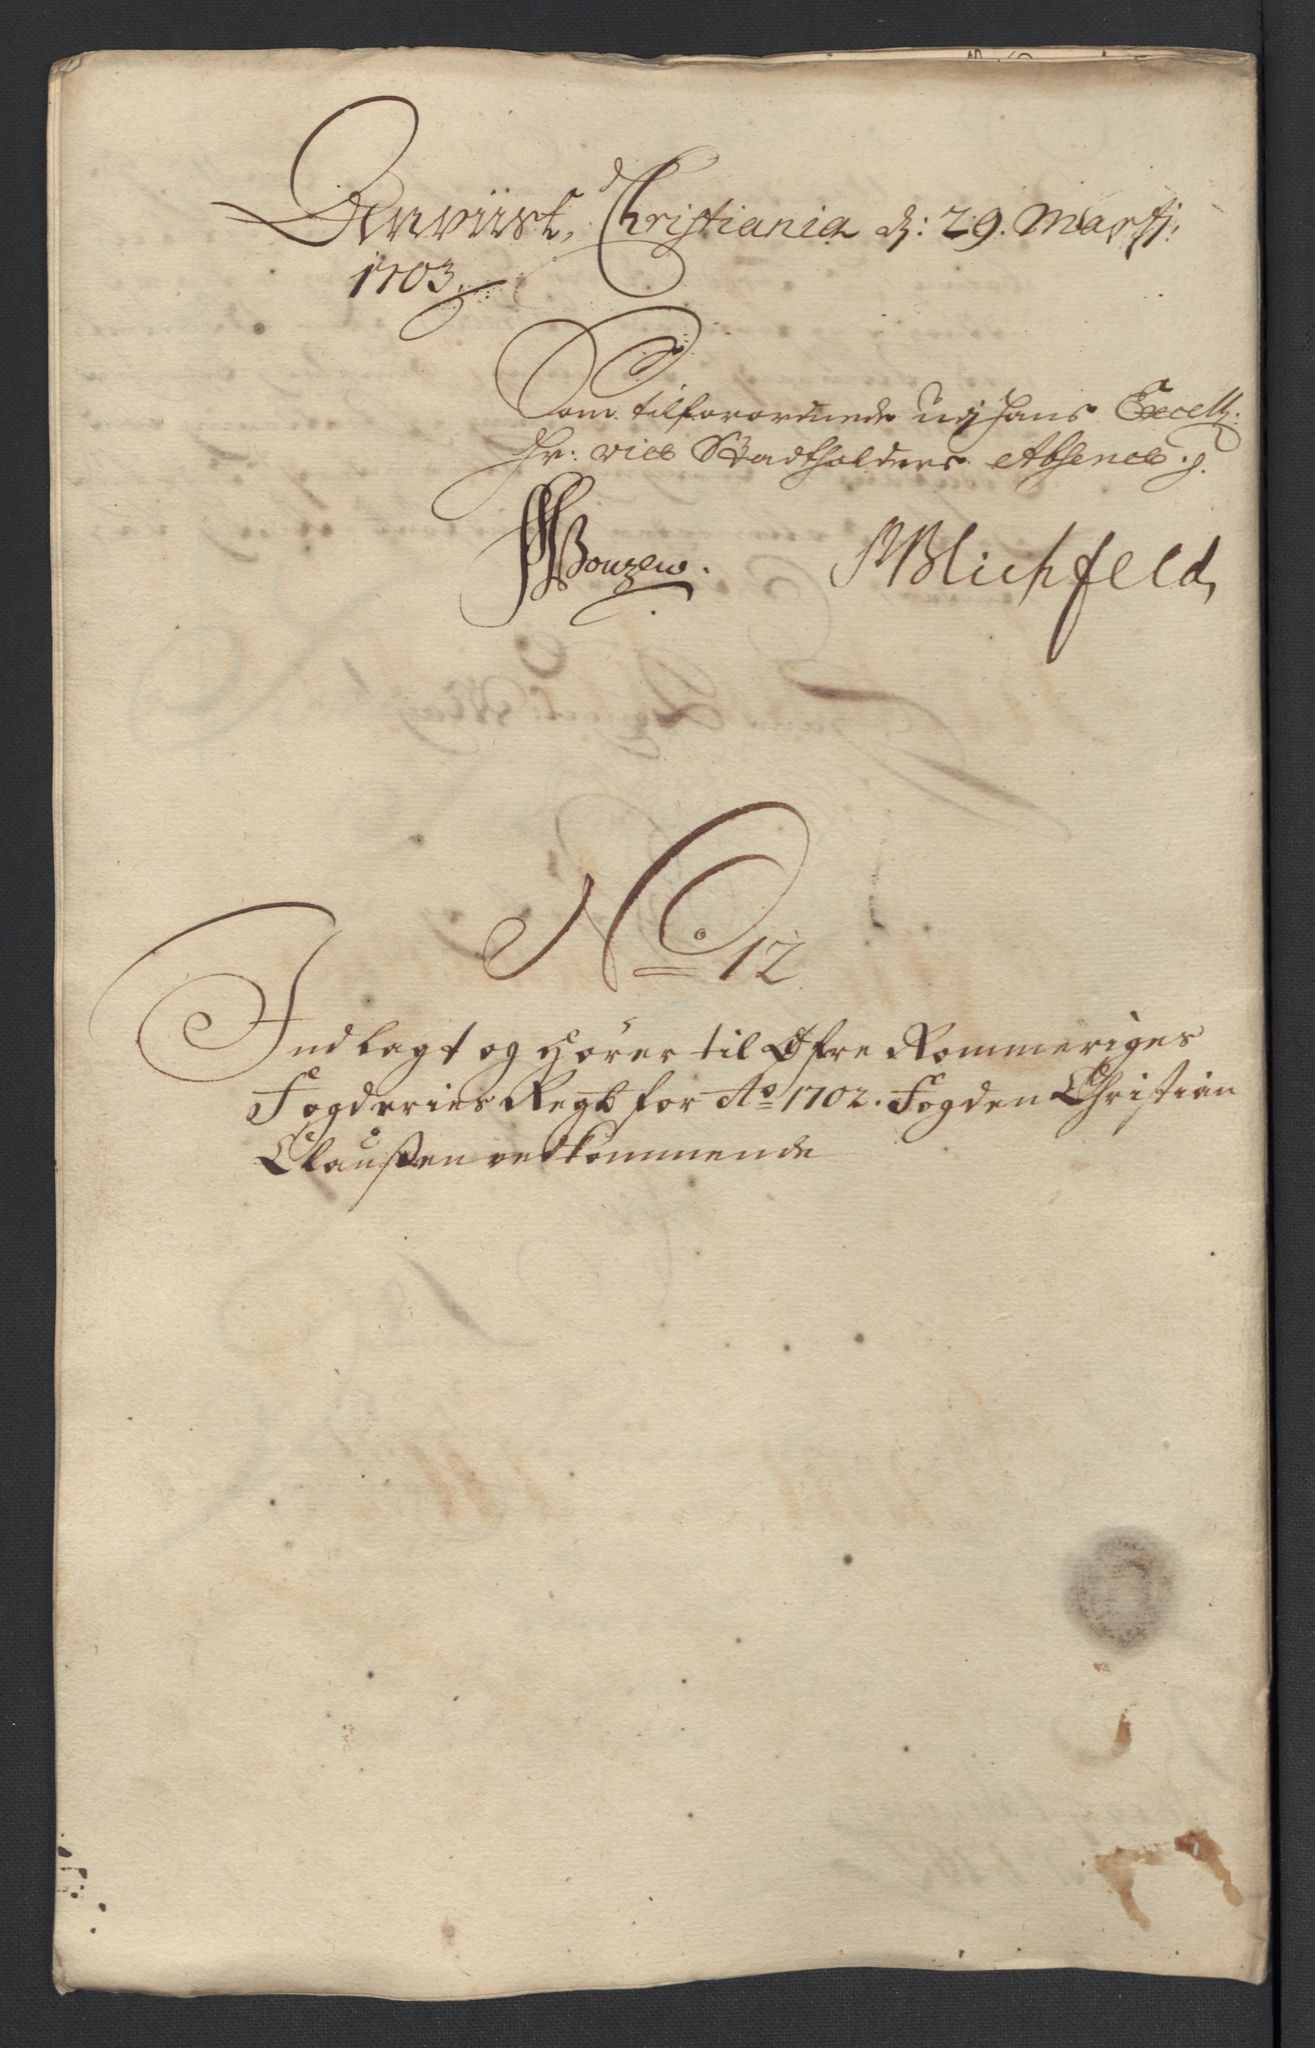 Anviist, Christiania d: 29. Martj.
1703.
Som tilforordnede udj hans Excell:
Hr: vice Stadtholders Absence.
Blichfeld
No 12
Indlagt og hører til Øfre Rommeriges
Fogderies Regsb for Ao 1702. Fogden Christian
Claussen vedkommende